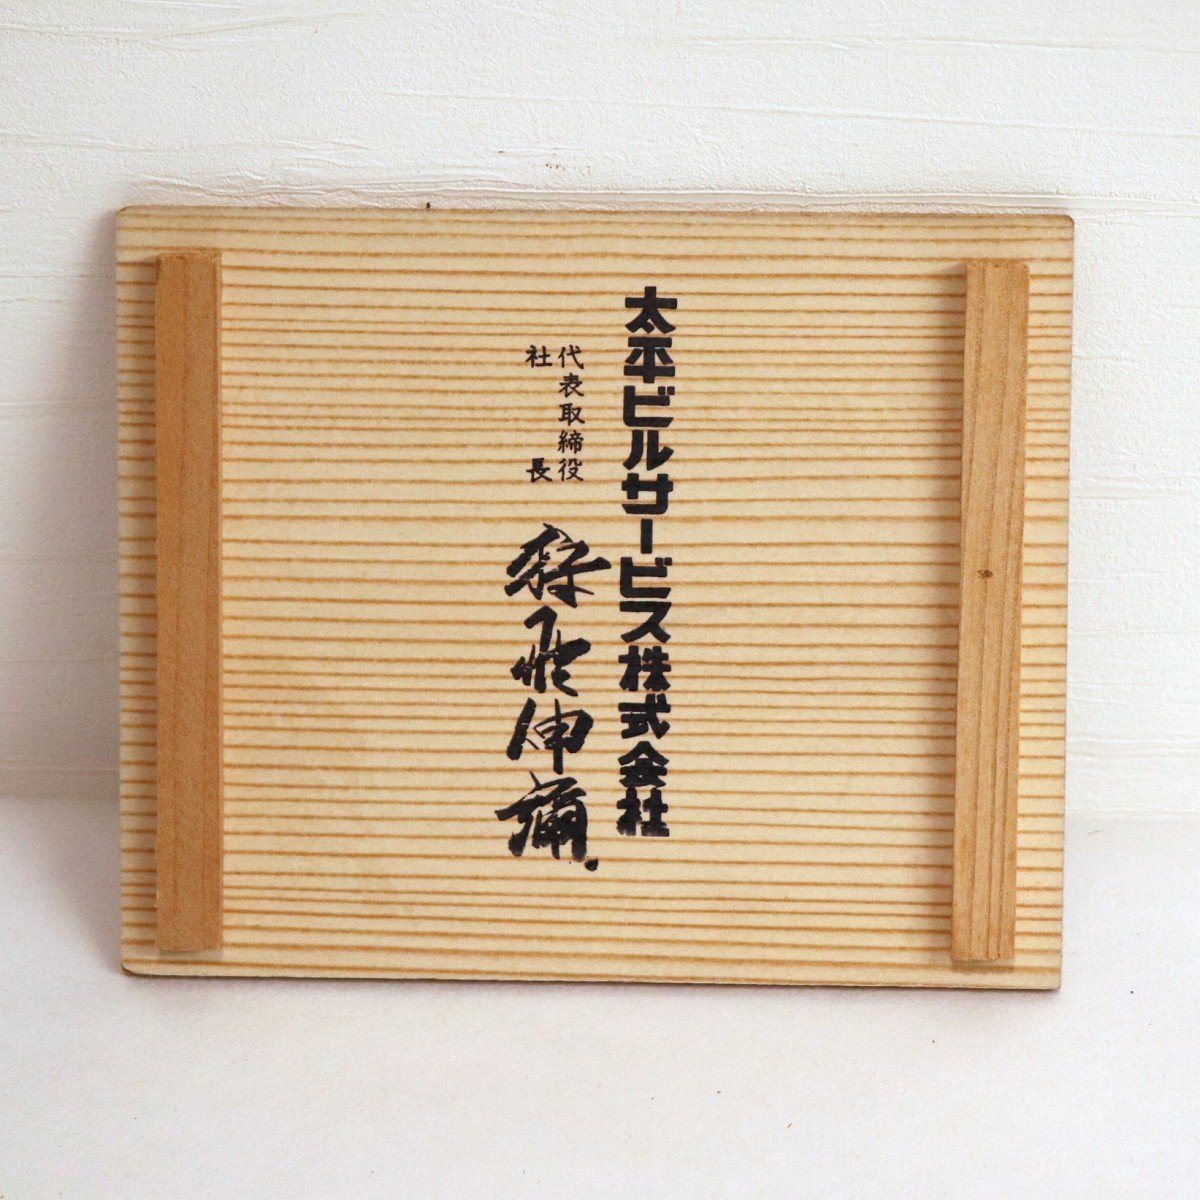 太平ビルサービス株式会社
代表取締役
社長
狩野伸彌